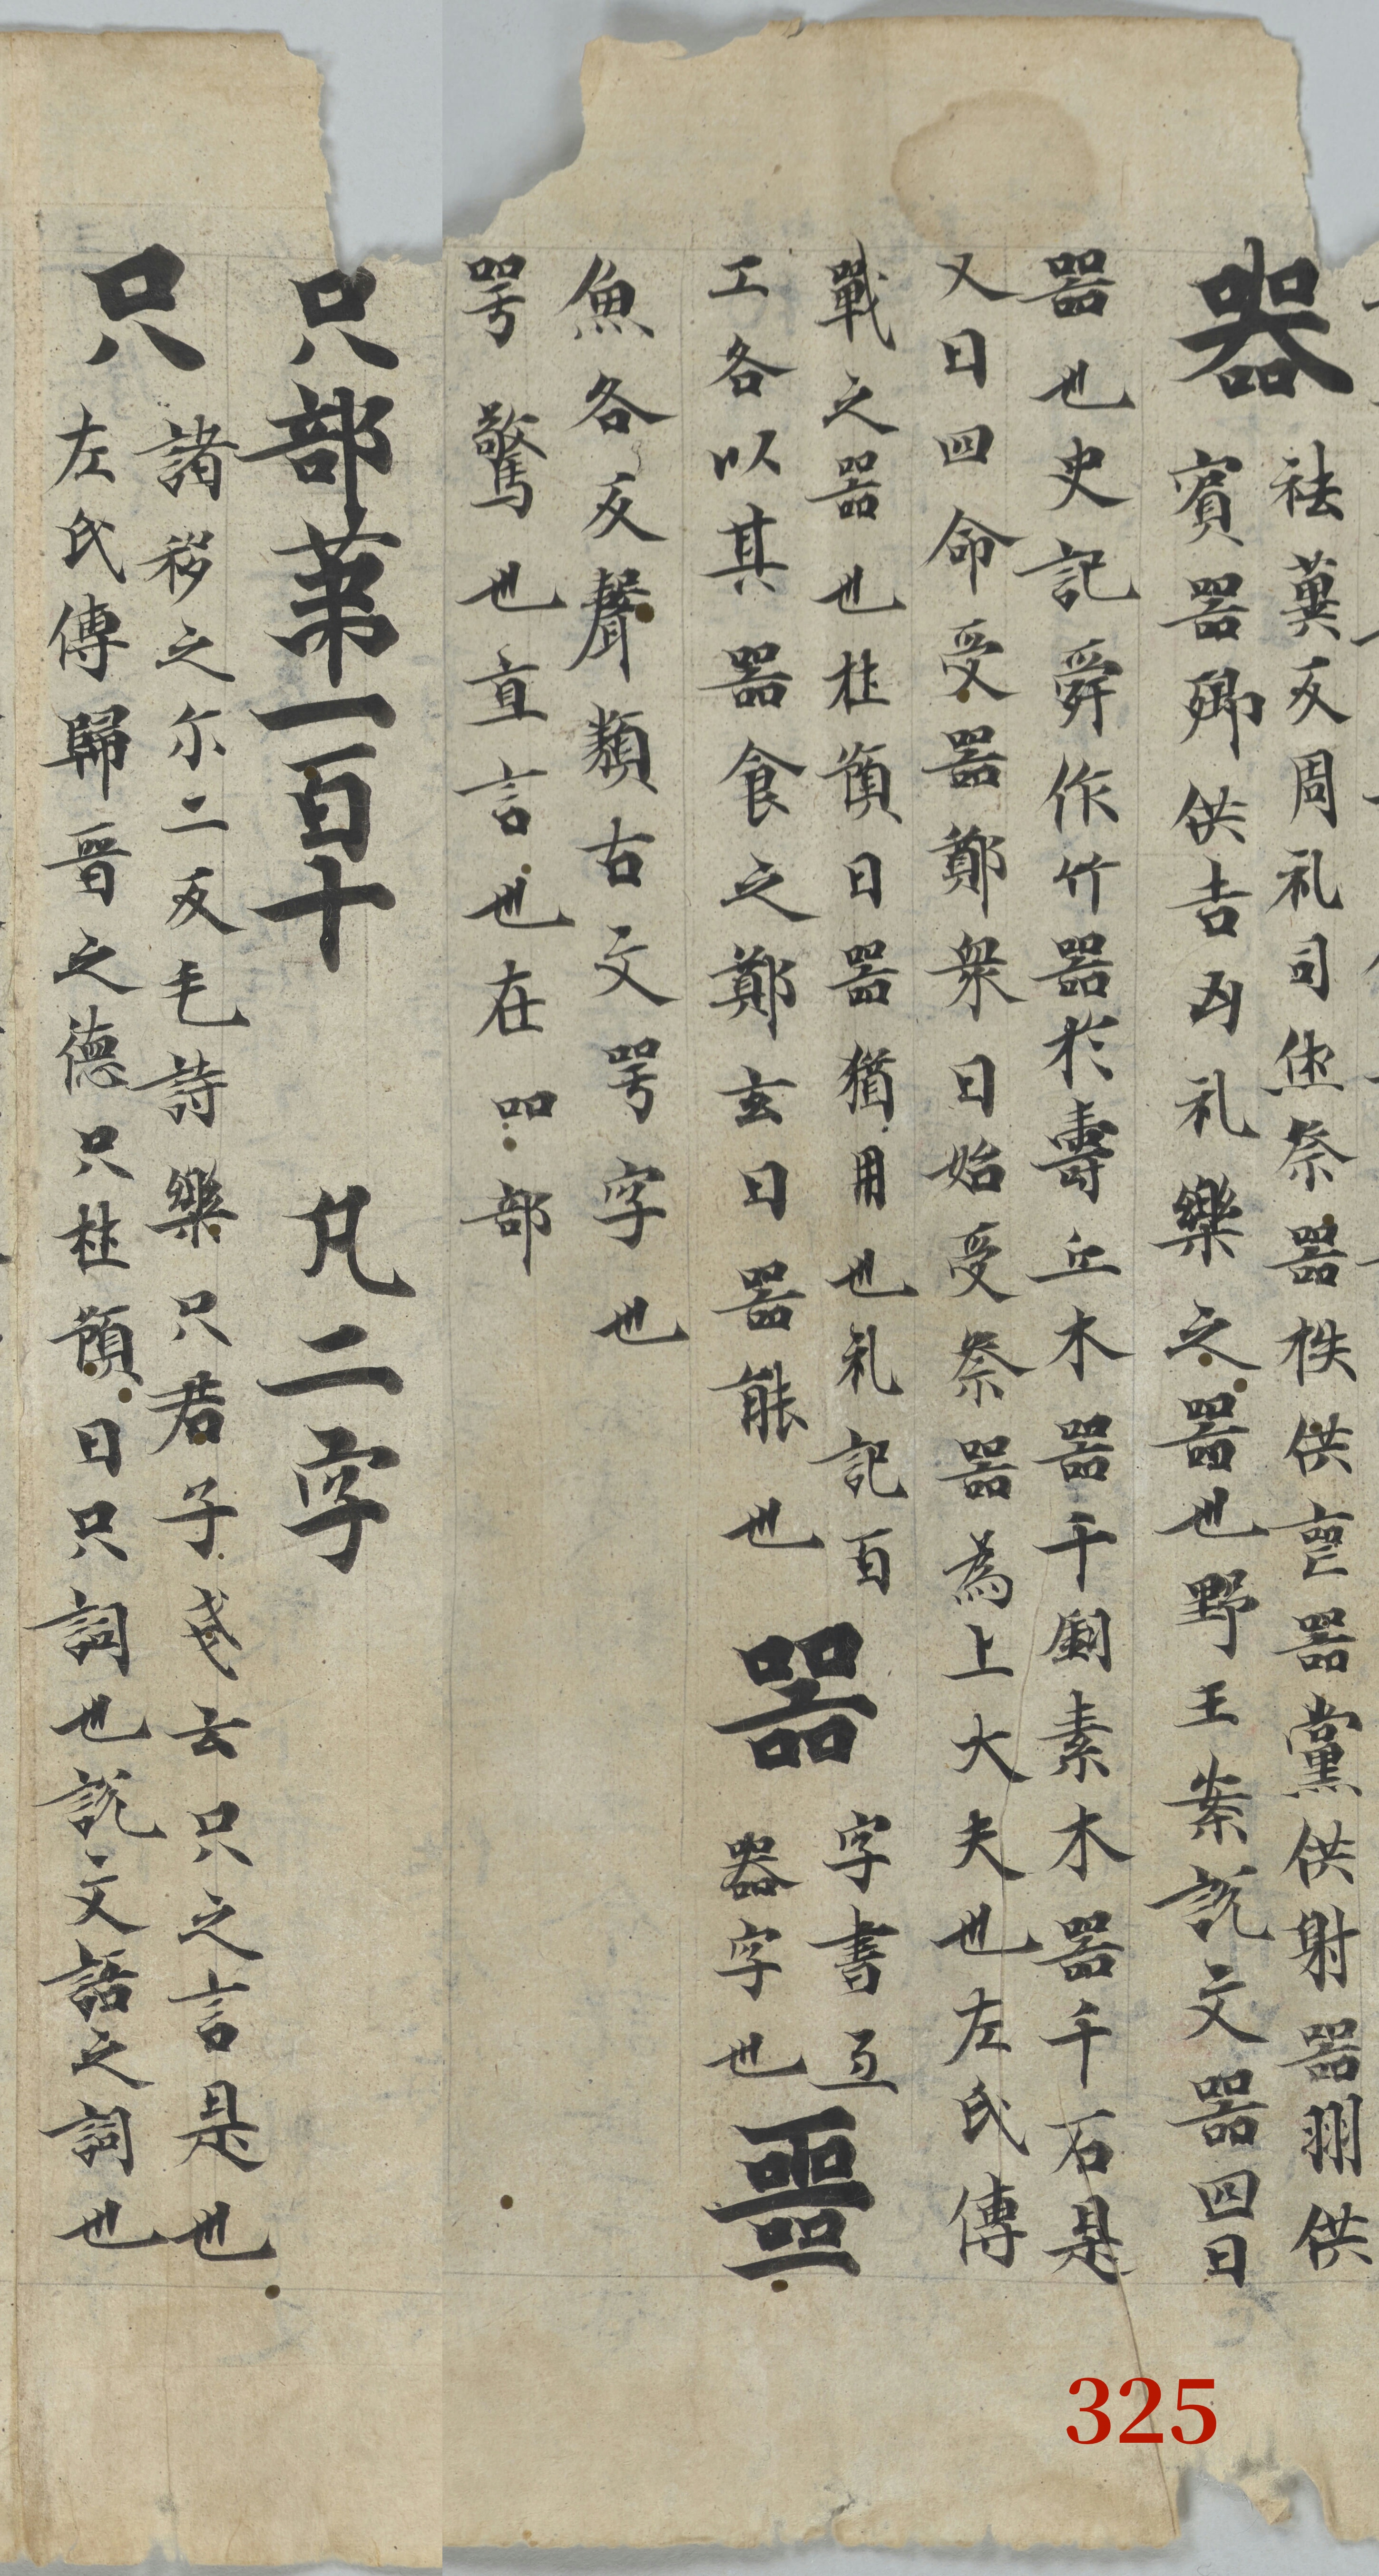 器
袪冀反周礼司徒祭器秩供喪器黨供射器州供
賓器鄉供吉凶礼樂之器也野王案説文器四曰
器也史記舜作竹器於壽丘木器千劅素木器千石是
又曰四命受器鄭衆曰始受祭器為上大夫也左氏傳
戰之器也杜預曰器猶用也礼記百
工各以其器食之鄭玄曰器能也
噐
字書亙
器字也
噩
魚各反聲類古文咢字也
咢驚也直言也在吅部
只部苐一百十 凡二字
只
諸移之尔二反毛詩樂只君子戔云只之言是也
左氏傳歸晉之德只杜預曰只詞也説文語之詞也
325